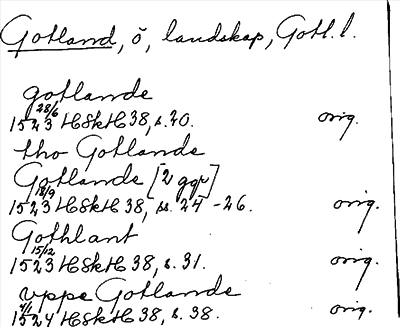 Gotland, ö, landskap, Gotl. l.
gotlande
1523 28/6 HSkH 38, s. 20. orig.
tho Gotlande
Gotlande [2 ggr]
1523 18/9 HSkH 38, ss. 24-26. orig.
Gothlant
1523 15/12 HSkH 38, s. 31. orig.
vppe Gotlande
1524 4/1 HSkH 38, s. 38. orig.